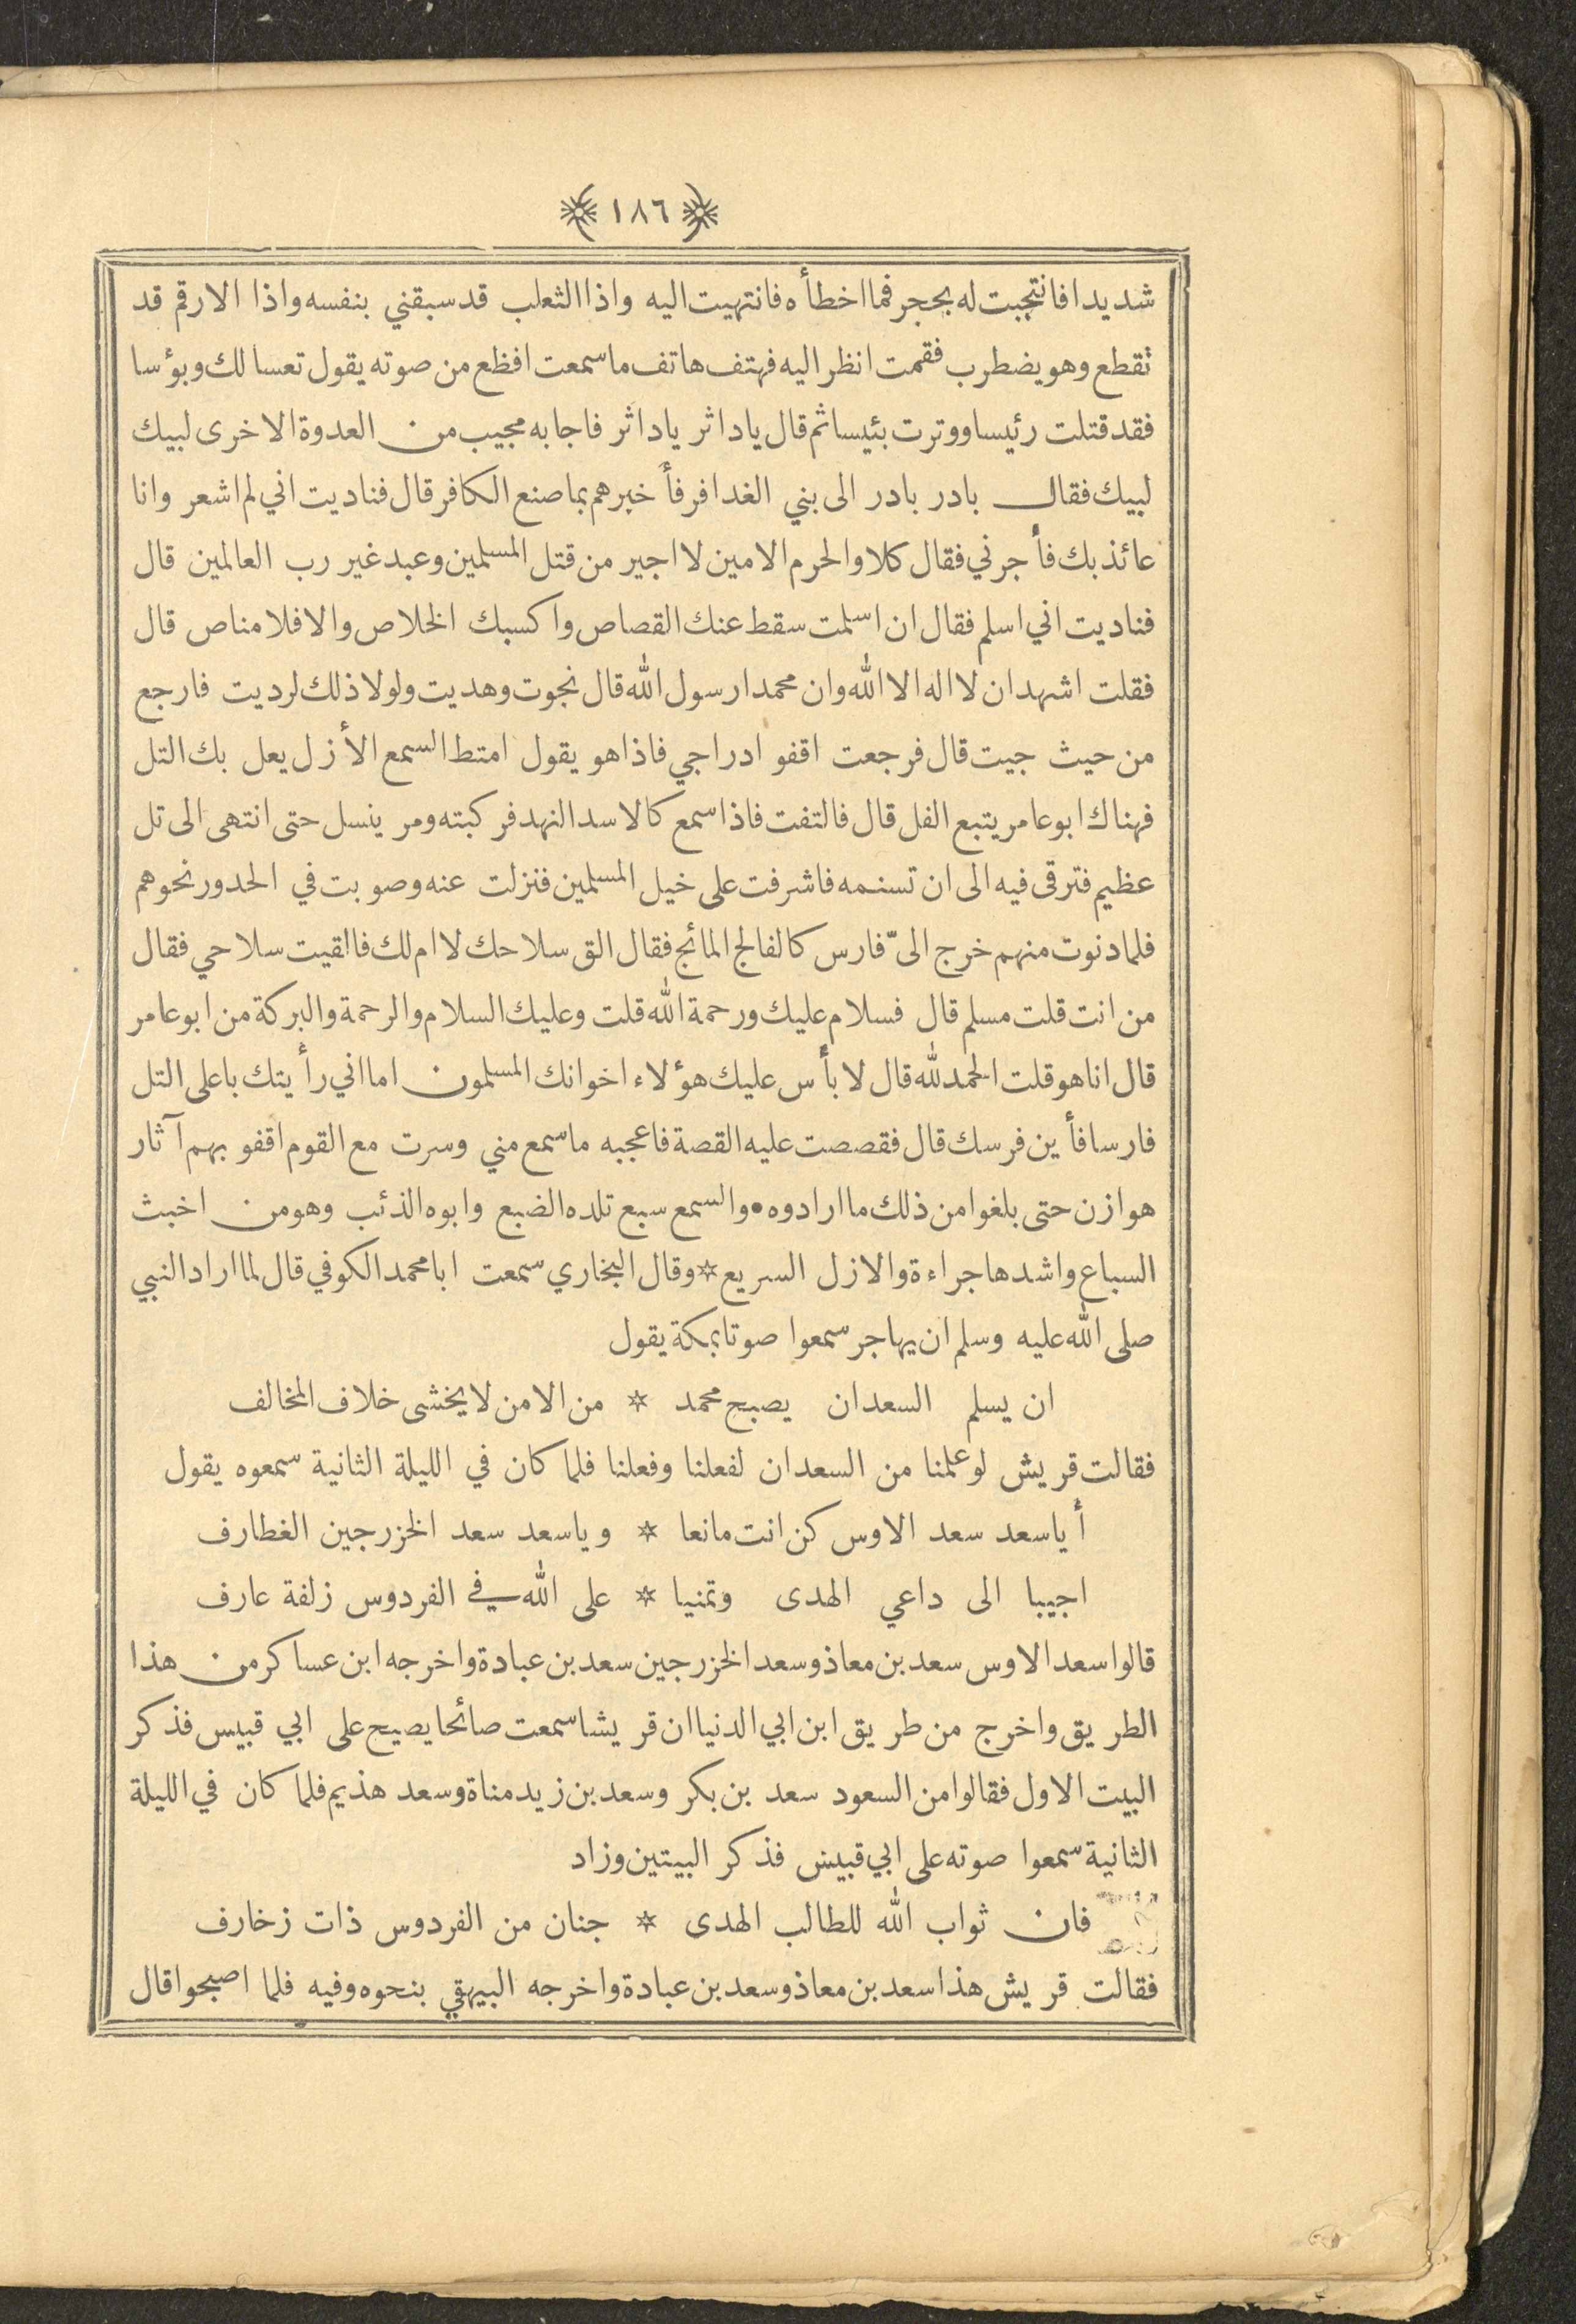 ١٨٦
شديدا فانتجبت له بحجر فما اخطأه فانتهيت اليه واذا الثعلب قد سبقني بنفسه واذا الارقم قد
تقطع وهو يضطرب فقمت انظر اليه فهتف هاتف ما سمعت افظع من صوته يقول تعسا لك وبؤسا
فقد قتلت رئيسا ووترت بئيسا ثم قال ياداثر ياداثر فاجابه مجيب من العدوة الاخرى لبيك
لبيك فقال بادر بادر الى بني الغدافر فأخبرهم بما صنع الكافر قال فناديت اني لم اشعر وانا
عائذ بك فأجرني فقال كلا والحرم الامين لا اجير من قتل المسلمين وعبد غير رب العالمين قال
فناديت اني اسلم فقال ان اسلمت سقط عنك القصاص واكسبك الخلاص والا فلا مناص قال
فقلت اشهد ان لا اله الا الله وان محمدا رسول الله قال نجوت وهديت ولولا ذلك لرديت فارجع
من حيث جيت قال فرجعت اقفو ادراجي فاذا هو يقول امتط السمع الأزل يعل بك التل
فهناك ابو عامر يتبع الفل قال فالتفت فاذا سمع كالاسد النهد فركبته ومر ينسل حتى انتهى الى تل
عظيم فترقى فيه الى ان تسنمه فاشرفت على خيل المسلمين فنزلت عنه وصوبت في الحدور نحوهم
فلما دنوت منهم خرج الىّ فارس كالفالج المائج فقال الق سلاحك لا ام لك فالقيت سلاحي فقال
من انت قلت مسلم قال فسلام عليك ورحمة الله قلت وعليك السلام والرحمة والبركة من ابو عامر
قال انا هو قلت الحمد لله قال لا بأس عليك هؤلاء اخوانك المسلمون اما اني رأيتك باعلى التل
فارسا فأين فرسك قال فقصصت عليه القصة فاعجبه ما سمع مني وسرت مع القوم اقفو بهم آثار
هوازن حتى بلغوا من ذلك ما ارادوه • والسمع سبع تلده الضبع وابوه الذئب وهو من اخبث
السباع واشدها جراءة والازل السريع * وقال البخاري سمعت ابا محمد الكوفي قال لما اراد النبي
صلى الله عليه وسلم ان يهاجر سمعوا صوتا بمكة يقول
ان يسلم السعدان يصبح محمد * من الامن لا يخشى خلاف المخالف
فقالت قريش لو علمنا من السعدان لفعلنا وفعلنا فلما كان في الليلة الثانية سمعوه يقول
أيا سعد سعد الاوس كن انت مانعا * ويا سعد سعد الخزرجين الغطارف
اجيبا الى داعي الهدى وتمنيا * على الله في الفردوس زلفة عارف
قالوا سعد الاوس سعد بن معاذ وسعد الخزرجين سعد بن عبادة واخرجه ابن عساكر من هذا
الطريق واخرج من طريق ابن ابي الدنيا ان قريشا سمعت صائحا يصيح على ابي قبيس فذكر
البيت الاول فقالوا من السعود سعد بن بكر وسعد بن زيد مناة وسعد هذيم فلما كان في الليلة
الثانية سمعوا صوته على ابي قبيس فذكر البيتين وزاد
فان ثواب الله للطالب الهدى * جنان من الفردوس ذات زخارف
فقالت قريش هذا سعد بن معاذ وسعد بن عبادة واخرجه البيهقي بنحوه وفيه فلما اصبحوا قال